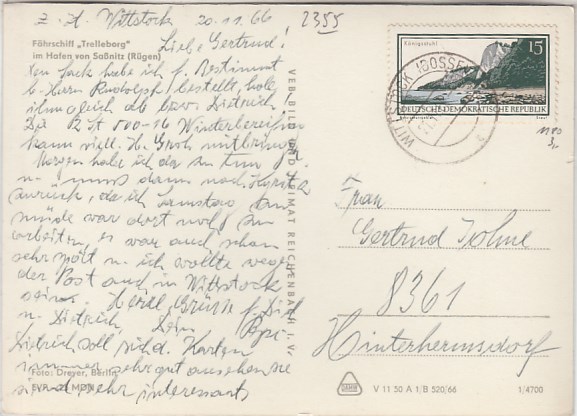 z. Zt. Wittstock 20.11.66
2355
Fährschiff „Trelleborg"
im Hafen von Saßnitz (Rügen)
Liebe Gertrud!
habe ich f. bestimmt
b. Herrn Rudolph bestellt, hole
ihn gleich ab bzw. Dietrich.
Die 2 St 500-16 Winterbereifung
kann viell. H. Groh mitbringen.
Morgen habe ich da zu tun
u. muss dann nach Kyritz
zurück, da ich Samstag zu
müde war dort noch zu
arbeiten, es war auch schon
sehr spät u. ich wollte wegen
der Post auch in Wittstock
sein. Herzl. Grüsse f. Dich
u. Dietrich, Dein
Dietrich soll sich d. Karten
immer sehr gut ansehen, sie
sind sehr interessant
Foto: Dreyer, Berlin
VEB BILD UND HEIMAT REICHENBACH I. V.
Königsstuhl
15
DEUTSCHE DEMOKRATISCHE REPUBLIK
WITTSTOCK (DOSSE)
Frau
Gertrud Johne
8361
Hinterhermsdorf
V 11 50 A 1/B 520/66
1/4700